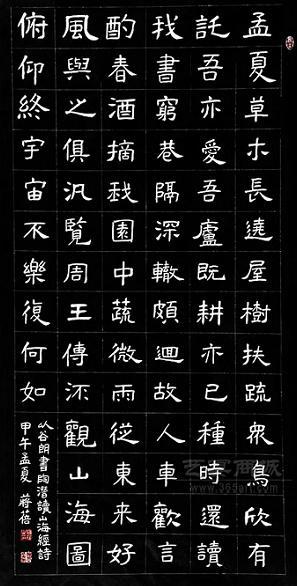 孟夏草木長遶屋樹扶疏衆鳥欣有
託吾亦愛吾廬既耕亦已種時還讀
我書窮巷隔深轍頗迴故人車歡言
酌春酒摘我園中蔬微雨從東來好
風與之俱汎覽周王傳流觀山海圖
俯仰終宇宙不樂復何如
以谷朗書陶潛讀山海經詩
甲午孟夏 蔣蓓